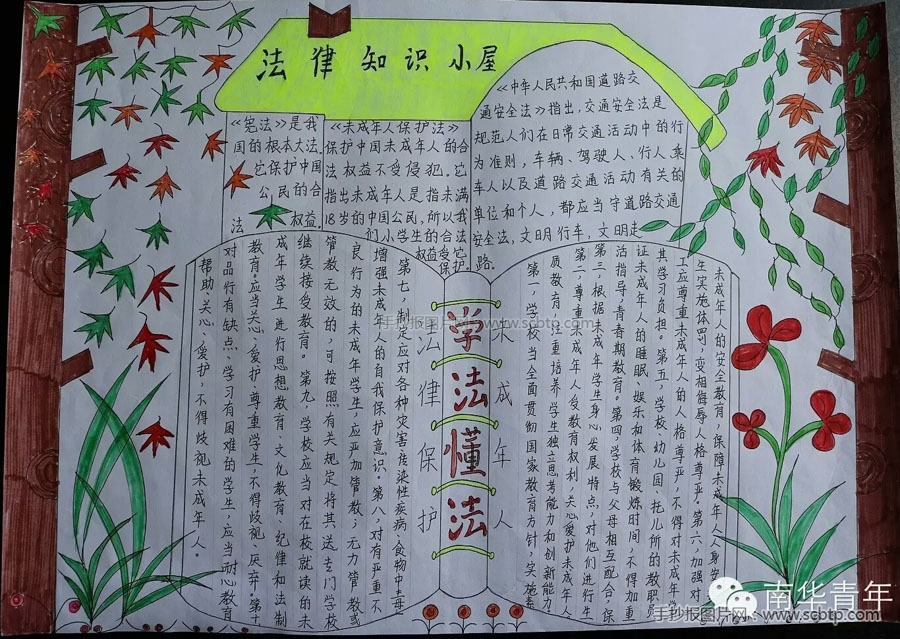 法律知识小屋
《宪法》是我
国的根本大法,
它保护中国
公民的合
法权益.
《未成年人保护法》
保护中国未成年人的合
法权益不受侵犯,它
指出未成年人是指未满
18岁的中国公民,所以我
们小学生的合法
权益受它
保护.
《中华人民共和国道路交
通安全法》指出,交通安全法是
规范人们在日常交通活动中的行
为准则,车辆、驾驶人、行人、乘
车人以及道路交通活动有关的
单位和个人,都应当守道路交通
安全法,文明行车,文明走
路.
学法懂法
未成年人
法律保护
第一,学校当全面贯彻国家教育方针,实施素
质教育,注重培养学生独立思考能力和创新能力,
第二,尊重未成年人受教育权利,关心爱护未成年人
第三,根据未成年学生身心发展特点,对他们进行生
活指导,青春期教育。第四,学校与父母相互配合,保
证未成年人的睡眠、娱乐和体育锻炼时间,不得加重
其学习负担。第五,学校、幼儿园、托儿所的教职员
工应尊重未成年人的人格尊严,不得对未成年学
生实施体罚,变相侮辱人格尊严。第六,加强对
未成年人的安全教育,保障未成年人人身安
第七,制定应对各种灾害传染性疾病、食物中毒
增强未成年人的自我保护意识。第八,对有严重不
良行为的未成年学生,应严加管教;无力管教或
管教无效的,可按照有关规定将其送专门学校
继续接受教育。第九,学校应当对在校就读的未
成年学生进行思想教育、文化教育、纪律和法制
教育。应当关心、爱护、尊重学生,不得歧视、厌弃。第十
对品行有缺点、学习有困难的学生,应当耐心教育
帮助、关心、爱护,不得歧视未成年人。
手抄报图片网 www.scbtp.com
南华青年
手抄报图片网 www.scbtp.com